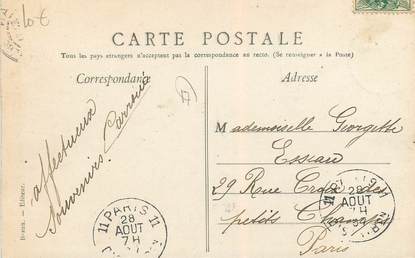 CARTE POSTALE
Tous les pays étrangers n'acceptent pas la correspondance au recto. (Se renseigner à la Poste)
Correspondance
Adresse
affectueux
souvenirs.
Mademoiselle Georgette
Esseau
29 Rue Croix des
petits Champs
Paris
PARIS 11
28
AOUT
7H
11
28
AOUT
Editeur.